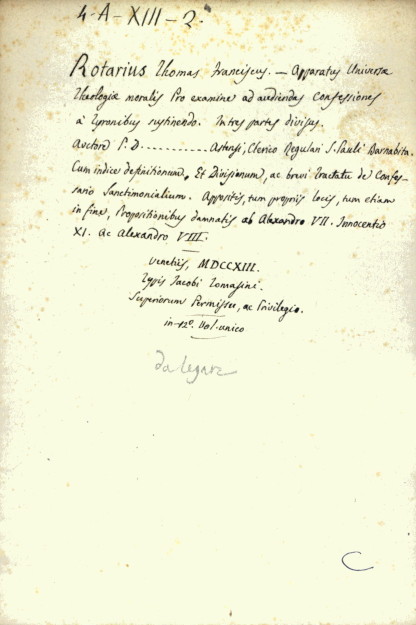 4-A-XIII-2.
Rotarius Thomas Franciscus. — Apparatus Universæ
Theologiæ moralis Pro examine ad audiendas Confessiones
à Tyronibus sustinendo. In tres partes divisus.
Auctore P. D. ........... Astensi, Clerico Regulari S. Pauli Barnabita.
Cum indice definitionum, Et Divisionum, ac brevi tractatu de Confes-
sario Sanctimonialium. Appositis, tum propriis locis, tum etiam
in fine, Propositionibus damnatis ab Alexandro VII. Innocentio
XI. ac Alexandro VIII.
Venetiis, MDCCXIII.
Typis Jacobi Tomasini.
Superiorum Permissu, ac Privilegio.
in-12º. Vol. unico
da legare
C